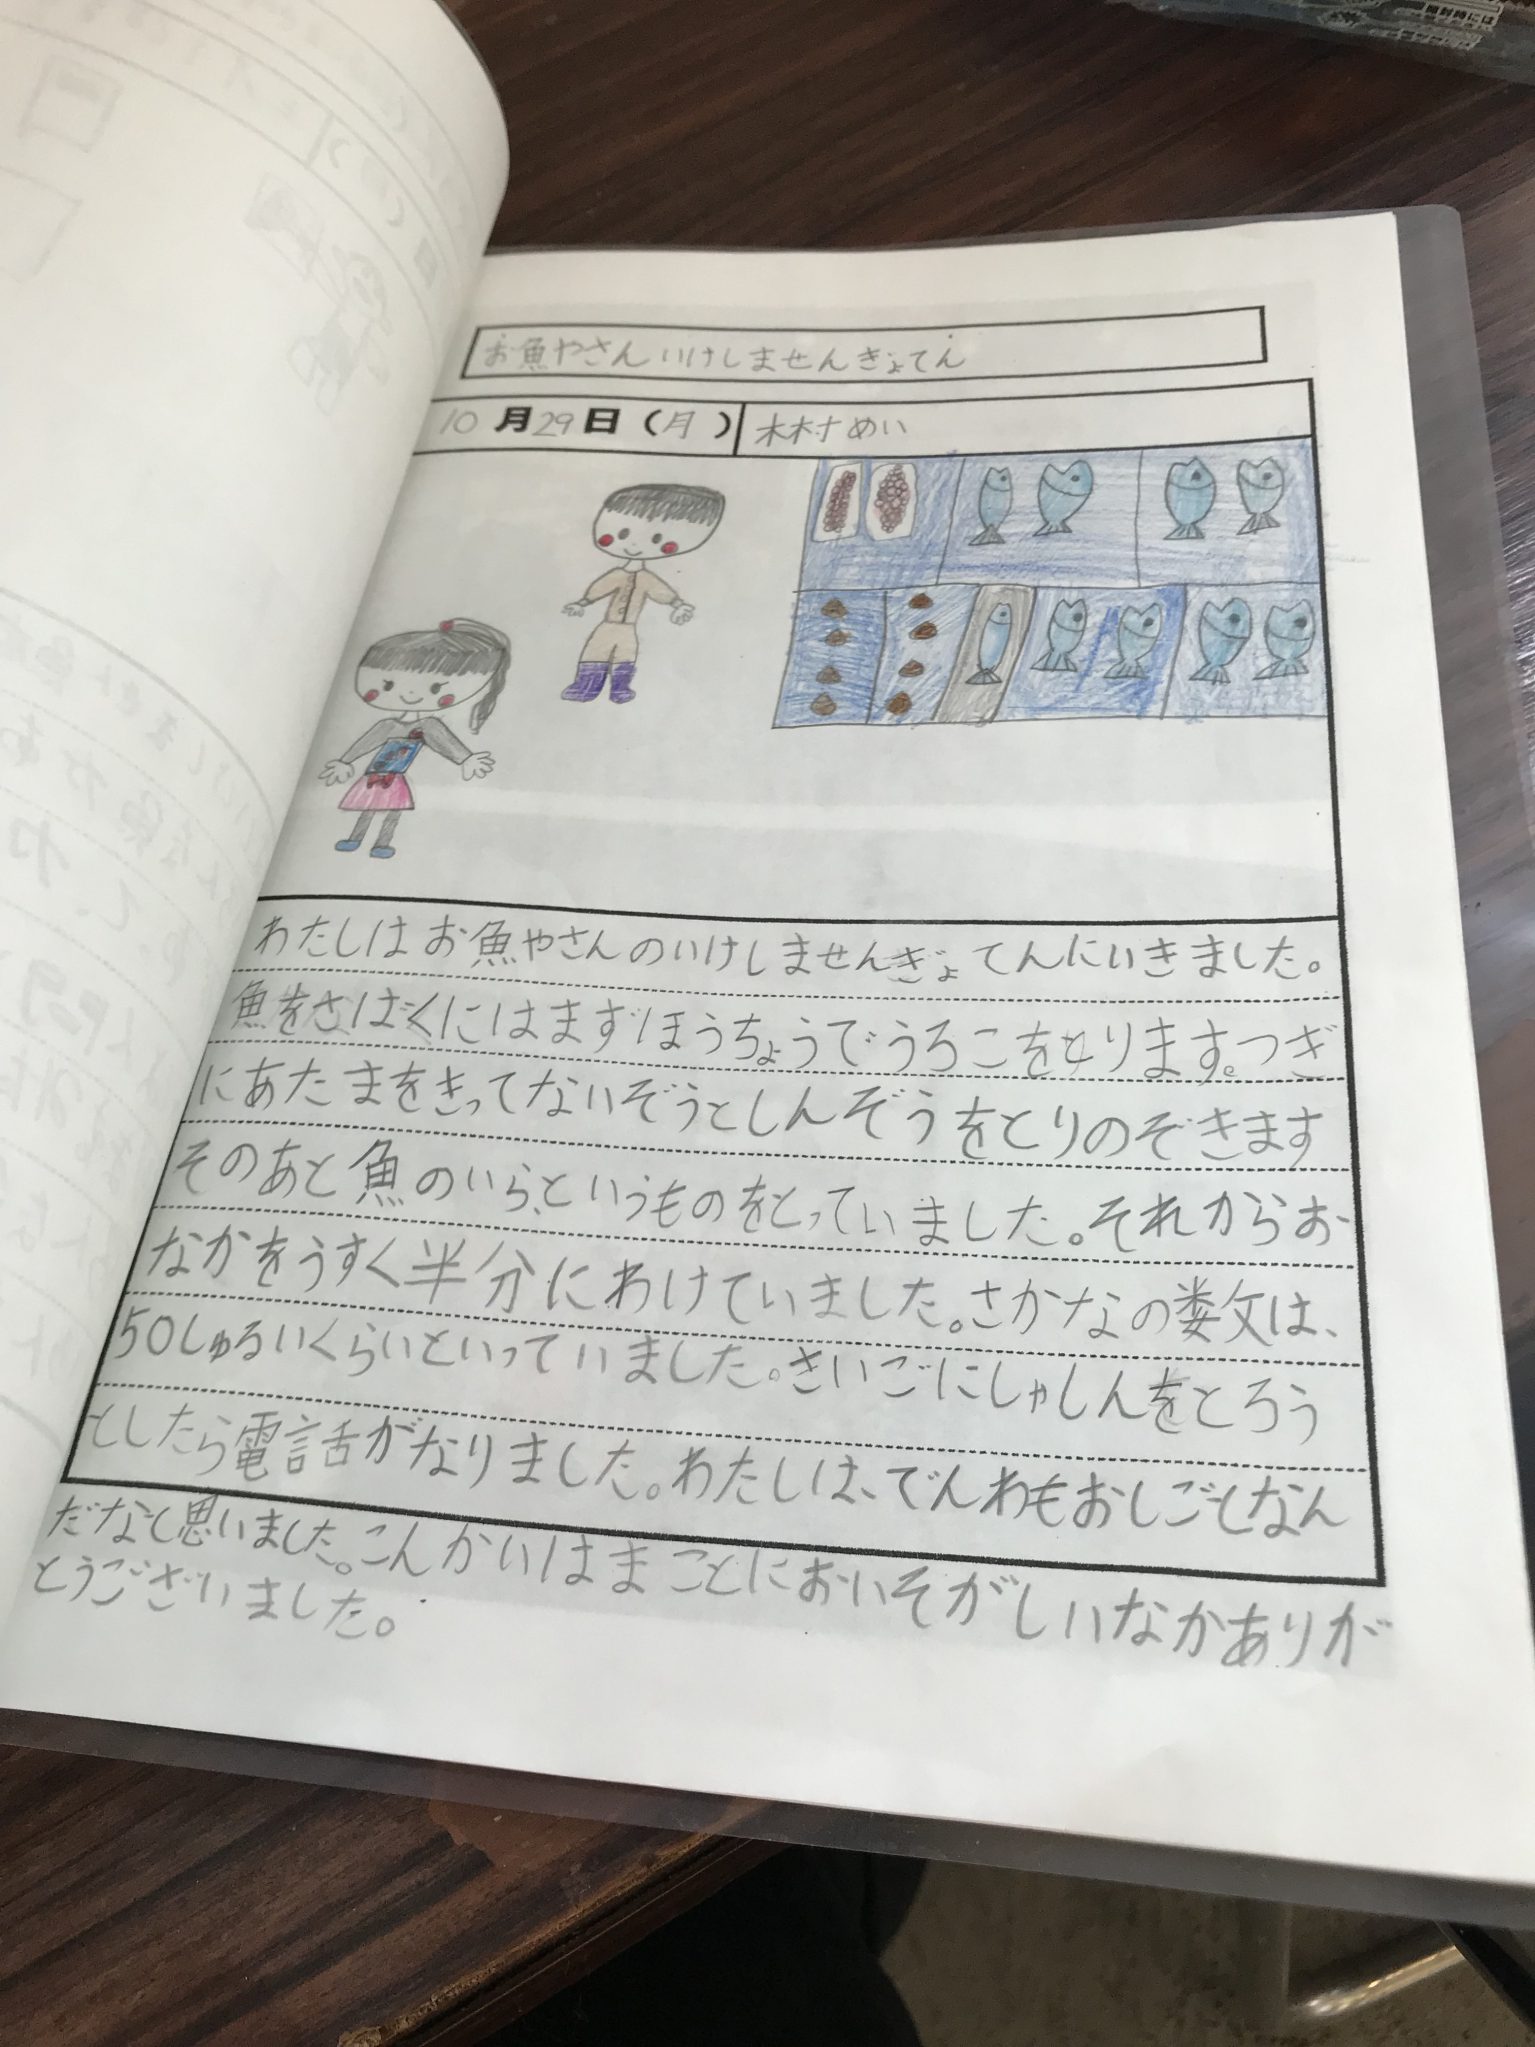 お魚やさんいけしませんぎょてん
10月29日(月)
木村めい
わたしはお魚やさんのいけしませんぎょてんにいきました。
魚をさばくにはまずほうちょうでうろこをとります。つぎ
にあたまをきってないぞうとしんぞうをとりのぞきます
そのあと魚のいら、というものをとっていました。それからお
なかをうすく半分にわけていました。さかなの数は、
50しゅるいくらいといっていました。さいごにしゃしんをとろう
としたら電話がなりました。わたしは、でんわもおしごとなん
だなと思いました。こんかいはまことにおいそがしいなかありが
とうございました。